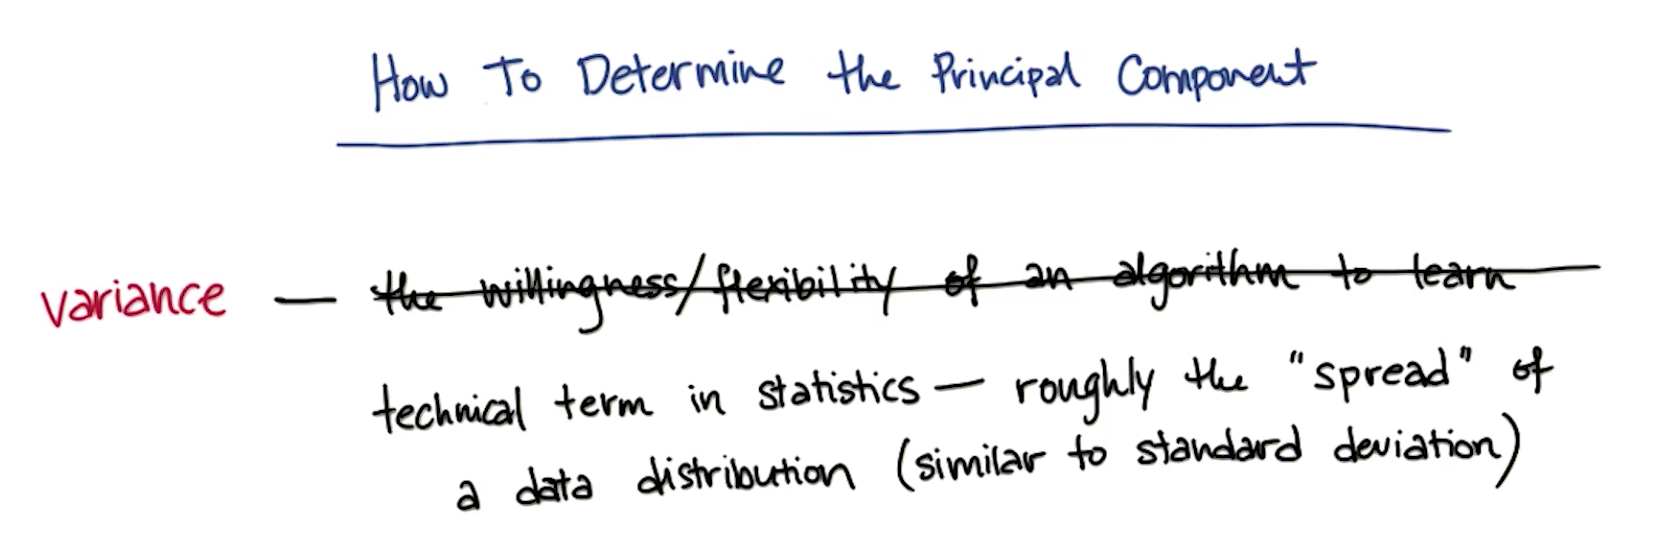 How To Determine the Principal Component
variance — the willingness/flexibility of an algorithm to learn
technical term in statistics — roughly the "spread" of
a data distribution (similar to standard deviation)